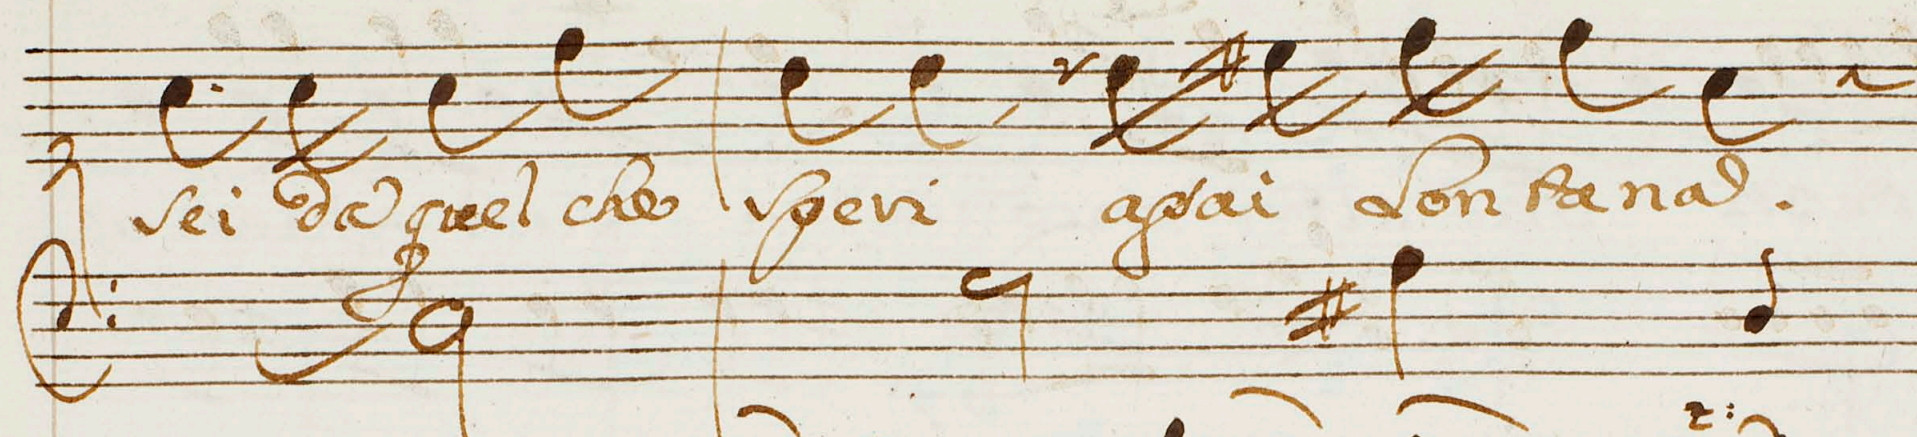 sei da quel che speri assai lontana.
2: